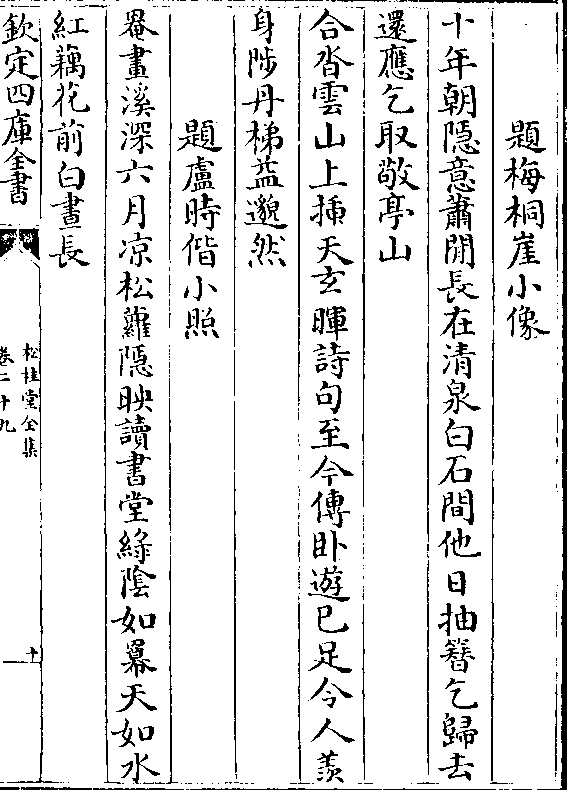 題梅桐崖小像
十年朝隱意蕭閒長在清泉白石間他日抽簪乞歸去
還應乞取敬亭山
合沓雲山上揷天玄暉詩句至今傳卧遊已足令人羨
身陟丹梯益邈然
題盧時偕小照
罨畫溪深六月凉松蘿隱映讀書堂綠陰如冪天如水
紅藕花前白晝長
欽定四庫全書
松桂堂全集
卷二十九
十